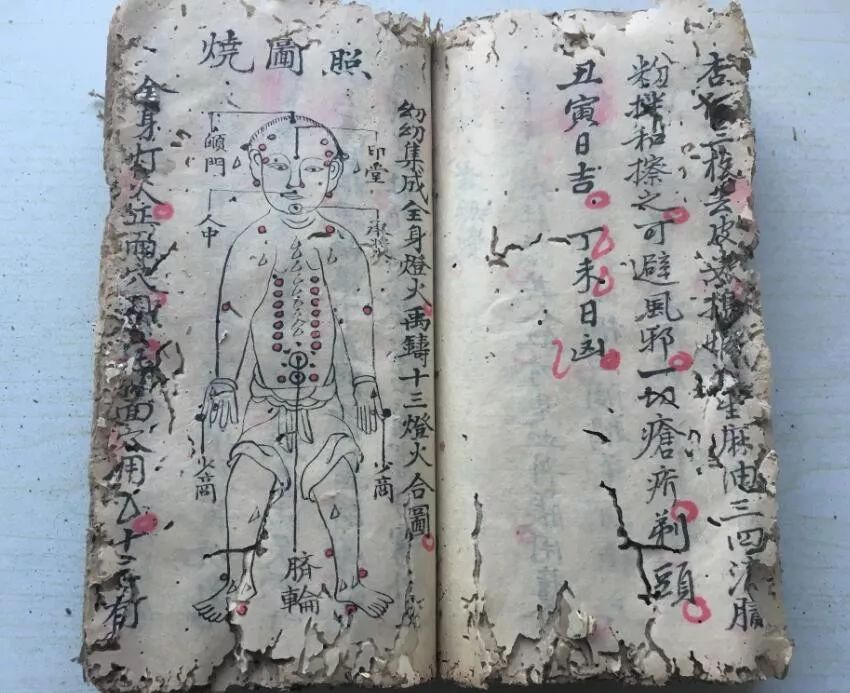 杏三枚去皮尖搗麻油三四滴膩
粉拌和擦之可避風邪一切瘡疥剃頭
丑寅日吉 丁未日凶
照圖燒
幼幼集成全身燈火禹鑄十三燈火合圖
印堂
承漿
少商
顖門
人中
少商
臍輪
全身灯火穴面用十三